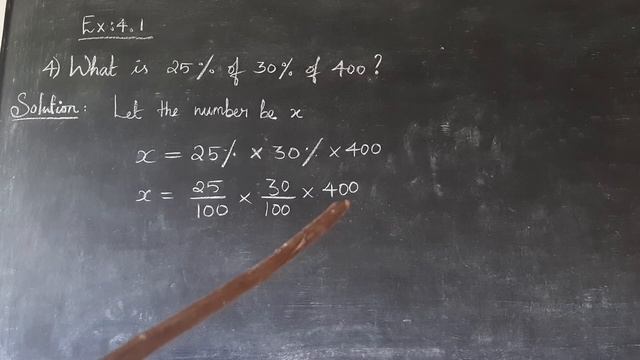 Ex:4.1
4) What is 25% of 30% of 400?
Solution: Let the number be x
x = 25% × 30% × 400
x = 25/100 × 30/100 × 400